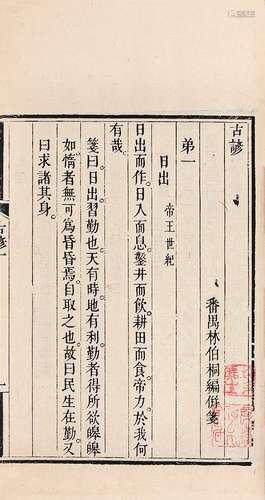 古諺
番禺林伯桐編倂箋
弟一
日出 帝王世紀
日出而作。日入而息。鑿井而飲。耕田而食。帝力於我何
有哉。
箋曰。日出習勤也。天有時。地有利。勤者得所欲。皞皞
如。惰者無可爲。昏昏焉。自取之也。故曰民生在勤。又
曰求諸其身。
古諺
一